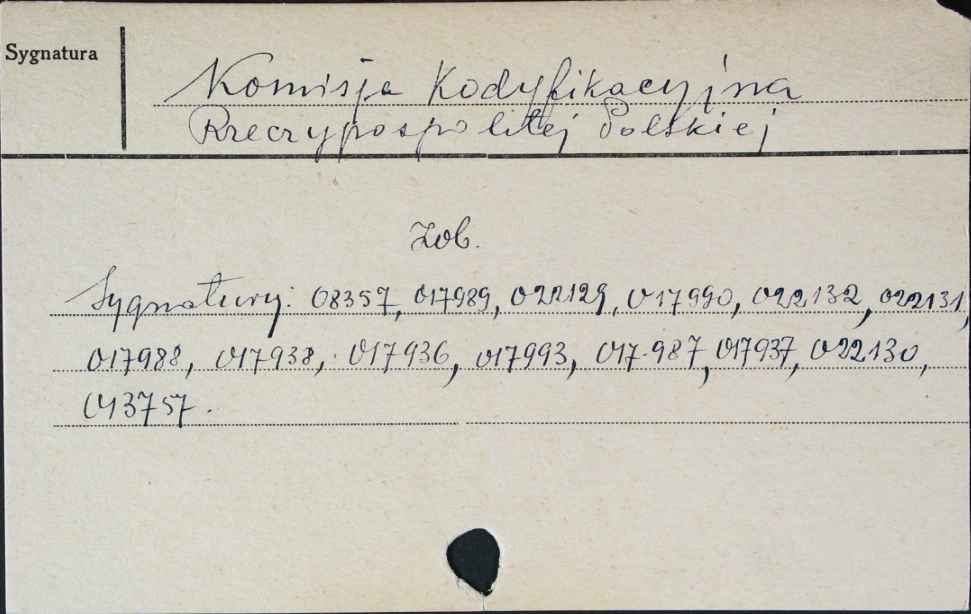 Sygnatura
Komisja Kodyfikacyjna
Rzeczypospolitej Polskiej
Zob.
Sygnatury: 08357, 017989, 022129, 017990, 022132, 022131,
017988, 017938, 017936, 017993, 017987, 017937, 022130,